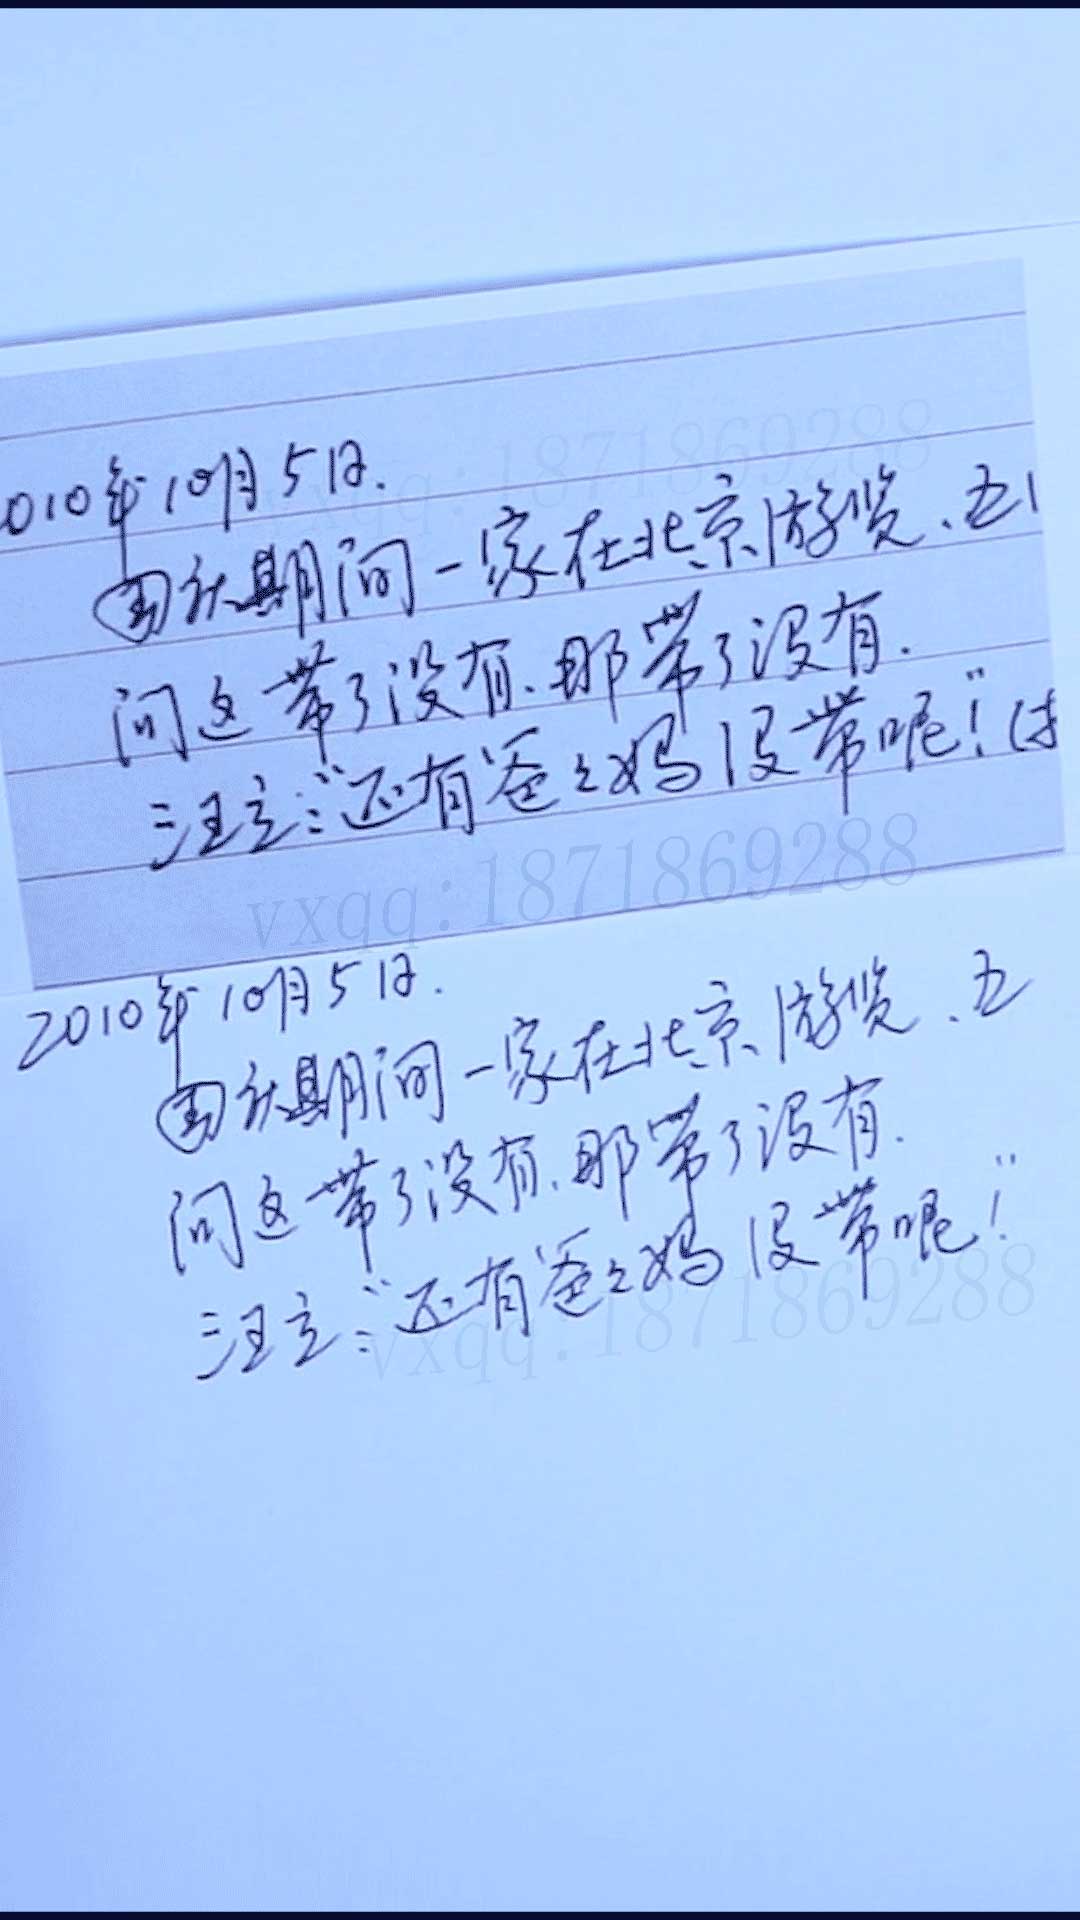 010年10月5日.
vxqq:1871869288
国庆期间一家在北京游览、五
问这带了没有、那带了没有.
汪立:“还有爸々妈没带呢!”(
vxqq:1871869288
2010年10月5日.
国庆期间一家在北京游览、五
问这带了没有、那带了没有.
汪立:“还有爸々妈没带呢!”
vxqq:1871869288